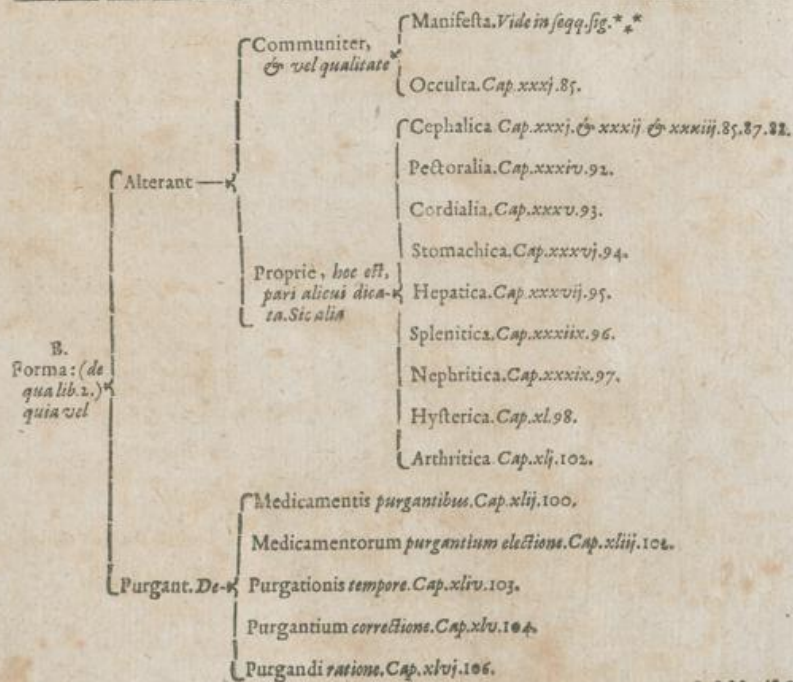 Communiter,
& vel qualitate
Manifeſta. Vide in ſeqq. ſig. ***
Occulta. Cap. xxxj. 85.
Alterant
Proprie, hoc eſt,
pari alicui dica-
ta. Sic alia
Cephalica Cap. xxxj. & xxxij & xxxiij. 85. 87. 88.
Pectoralia. Cap. xxxiv. 92.
Cordialia. Cap. xxxv. 93.
Stomachica. Cap. xxxvj. 94.
Hepatica. Cap. xxxvij. 95.
Splenitica. Cap. xxxiix. 96.
Nephritica. Cap. xxxix. 97.
Hyſterica. Cap. xl. 98.
Arthritica Cap. xlj. 102.
B.
Forma: (de
qua lib. 2.)
quia vel
Purgant. De
Medicamentis purgantibus. Cap. xlij. 100.
Medicamentorum purgantium electione. Cap. xliij. 102.
Purgationis tempore. Cap. xliv. 103.
Purgantium correctione. Cap. xlv. 104.
Purgandi ratione. Cap. xlvj. 106.